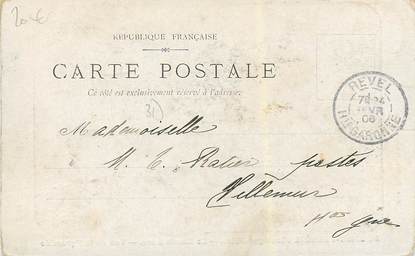 20€
RÉPUBLIQUE FRANÇAISE
CARTE POSTALE
Ce côté est exclusivement réservé à l'adresse
REVEL
HTE GARONNE
31
Mademoiselle
M. E. Ratier postes
Villemur
Hte Gne